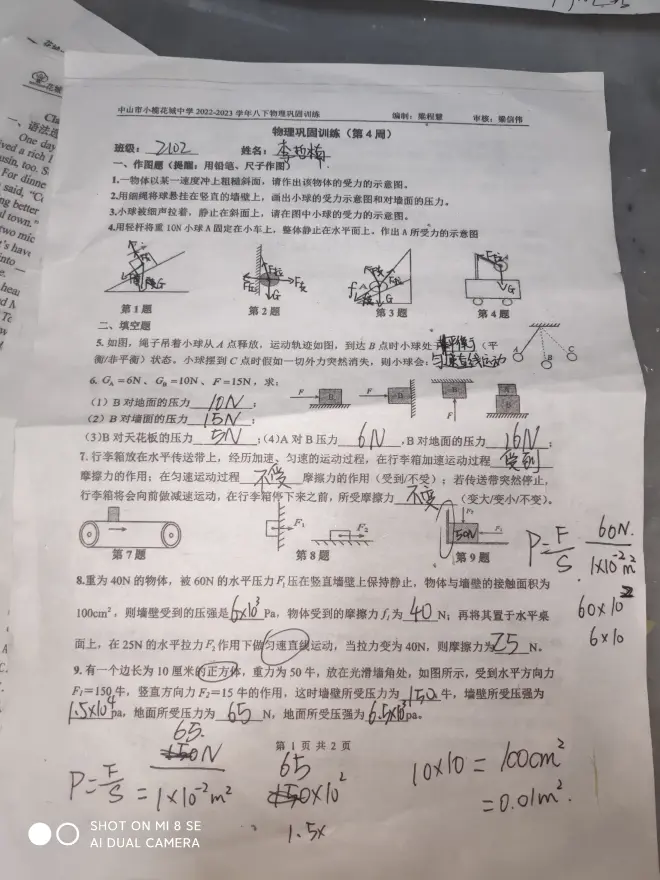 中山市小榄花城中学 2022-2023 学年八下物理巩固训练 编制：审核：
物理巩固训练（第 4 周）
班级：2102 姓名：李哲梅
一、作图题（提醒：用铅笔、尺子作图）
1.一物体以某一速度冲上粗糙斜面，请作出该物体的受力的示意图。
2.用细绳将球悬挂在竖直的墙壁上，画出小球的受力示意图和对墙面的压力。
3.小球被细声拉着，静止在斜面上，请在图中小球的受力的示意图。
4.用轻杆将重 10N 小球 A 固定在小车上，整体静止在水平面上。作出 A 所受力的示意图
第 1 题 第 2 题 第 3 题 第 4 题
二、填空题
5.如图，绳子吊着小球从 A 点释放，运动轨迹如图，到达 B 点时小球处于非平衡（平
衡/非平衡）状态。小球摆到 C 点时假如一切外力突然消失，则小球会：匀速直线运动
A B C
6. G_A =6N、G_B =10N、F =15N，求：
（1）B 对地面的压力 10N ；
（2）B 对墙面的压力 15N ；
(3)B 对天花板的压力 5N ；(4)A 对 B 压力 6N ，B 对地面的压力 16N ；
F B F B B F A B
7. 行李箱放在水平传送带上，经历加速、匀速的运动过程，在行李箱加速运动过程 受到
摩擦力的作用；在匀速运动过程 不受 摩擦力的作用（受到/不受）；若传送带突然停止，
行李箱将会向前做减速运动，在行李箱停下来之前，所受摩擦力 不变 （变大/变小/不变）。
F₁ F₂ 50N F₂ F₁
第 7 题 第 8 题 第 9 题
P=F/S 60N. / 1×10⁻² m²
8.重为 40N 的物体，被 60N 的水平压力 F₁压在竖直墙壁上保持静止，物体与墙壁的接触面积为
100cm²，则墙壁受到的压强是 6×10³ Pa，物体受到的摩擦力 f₁为 40 N；再将其置于水平桌
60×10²
面上，在 25N 的水平拉力 F₂作用下做匀速直线运动，当拉力变为 40N，则摩擦力为 25 N。
6×10
9. 有一个边长为 10 厘米的正方体，重力为 50 牛，放在光滑墙角处，如图所示，受到水平方向力
F₁=150 牛，竖直方向力 F₂=15 牛的作用，这时墙壁所受压力为 150 牛，墙壁所受压强为
1.5×10⁴ pa，地面所受压力为 65 N，地面所受压强为 6.5×10³ pa。
第 1 页 共 2 页
P=F/S = 65. 150N / 1×10⁻² m²
65
150×10²
1.5×
10×10 = 100cm²
= 0.01m².
SHOT ON MI 8 SE
AI DUAL CAMERA